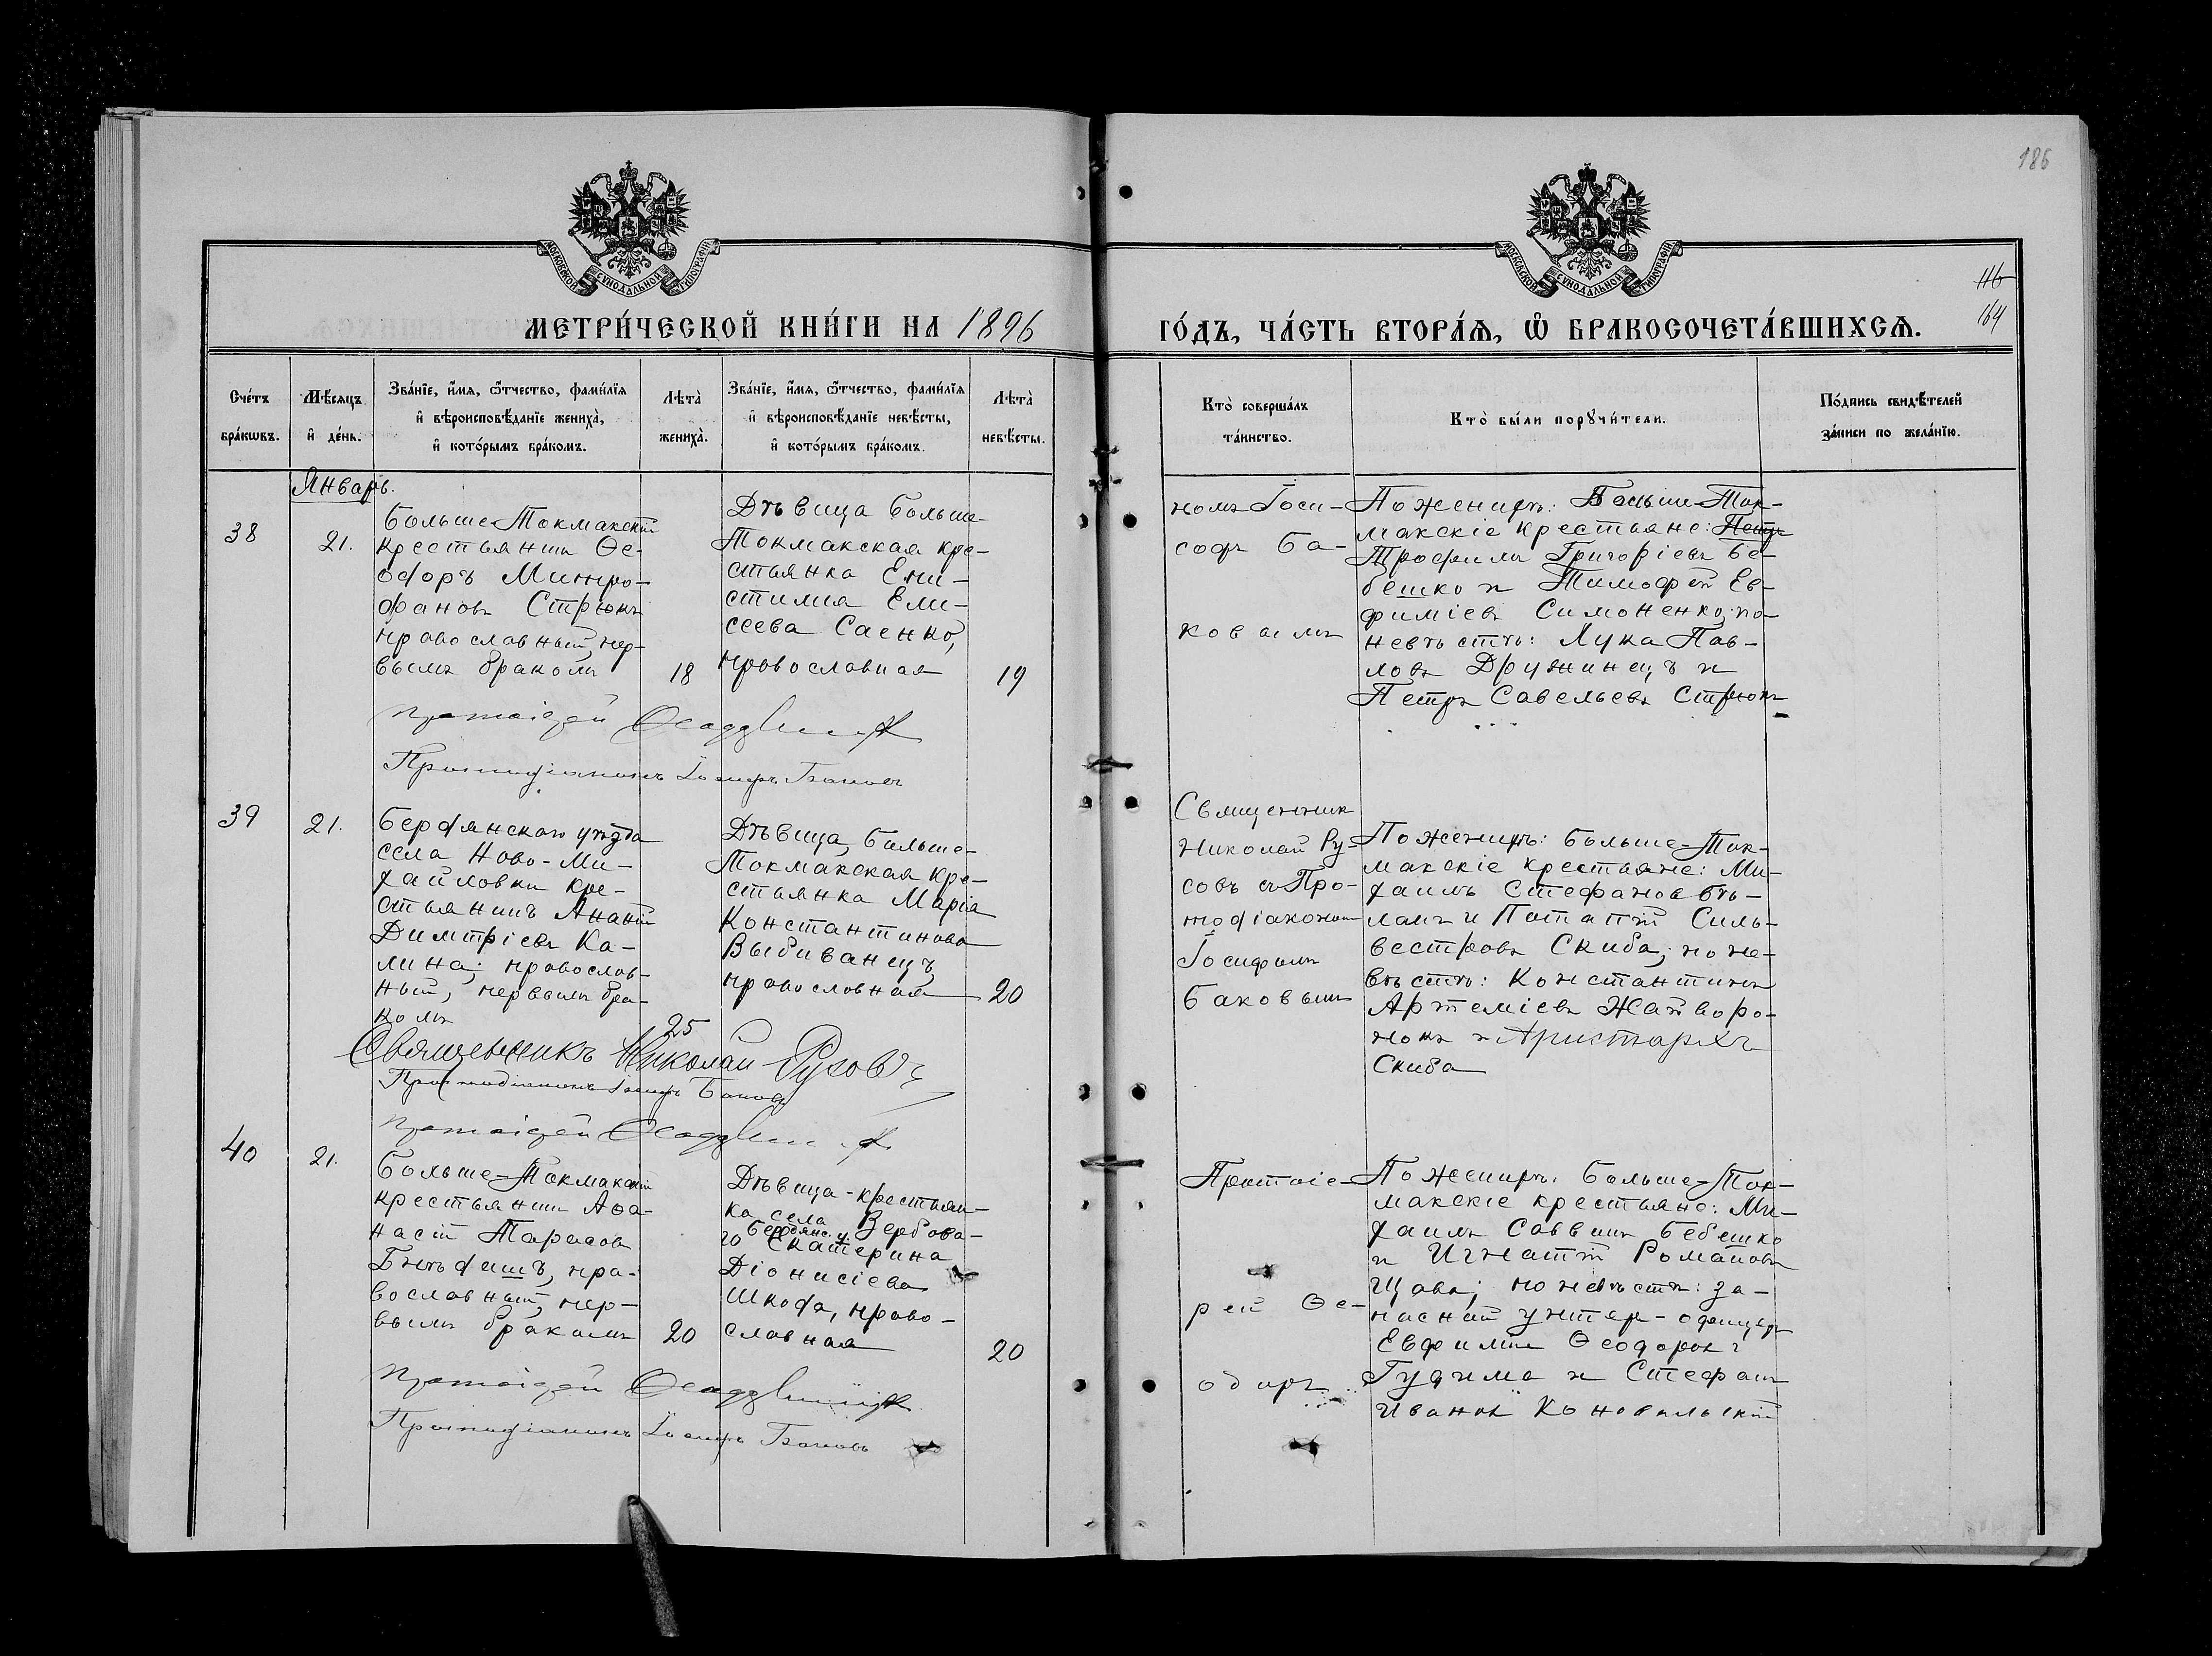 186
116
164
МОСКОВСКОЙ СѴНОДАЛЬНОЙ ТИПОГРАФІИ
МОСКОВСКОЙ СѴНОДАЛЬНОЙ ТИПОГРАФІИ
МЕТРИ́ЧЕСКОЙ КНИ́ГИ НА 1896
ГО́ДЪ, ЧА́СТЬ ВТОРА́Я, Ѡ҆ БРАКОСОЧЕТА́ВШИХСЯ.
Сче́тъ
бра́кѡвъ.
Мѣ́сяцъ
и҆ де́нь.
Зва́нїе, и҆́мя, ѻ҆́тчество, фами́лїя
и҆ вѣроисповѣ́данїе жениха̀,
и҆ кото́рымъ бра́комъ.
Лѣта̀
жениха̀.
Зва́нїе, и҆́мя, ѻ҆́тчество, фами́лїя
и҆ вѣроисповѣ́данїе невѣ́сты,
и҆ кото́рымъ бра́комъ.
Лѣта̀
невѣ́сты.
Кто̀ соверша́лъ
та́инство.
Кто̀ бы́ли порꙋчи́тели.
По́дпись свидѣ́телей
за́писи по жела́нїю.
Январь.
38
21.
Больше-Токмакскій
крестьянинъ Ѳе-
одоръ Митро-
фановъ Стрюкъ
православный, пер-
вымъ бракомъ
18
Дѣвица Больше-
Токмакская кре-
стьянка Епи-
стимия Ели-
сеева Саенко,
православная
19
номъ Іоси-
фомъ Ба-
ковымъ
По женихѣ: Больше-Ток-
макскіе крестьяне: Петръ
Трофимъ Григорьевъ Бе-
бешко и Тимофей Ев-
фиміевъ Симоненко; по
невѣстѣ: Лука Пав-
ловъ Дружинецъ и
Петръ Савельевъ Стрюкъ
протоіерей
Протодіаконъ Іосифъ Баковъ
39
21.
Бердянскаго уѣзда
села Ново-Ми-
хайловки кре-
стьянинъ Ананій
Димитріевъ Ка-
лина; православ-
ный, первымъ бра-
комъ
25
Дѣвица, Больше-
Токмакская кре-
стьянка Марія
Константинова
Выбиванецъ,
православная
20
Священник
Николай Ру-
совъ съ Про-
тодіакономъ
Іосифомъ
Баковымъ
По женихѣ: Больше-Ток-
макскіе крестьяне: Ми-
хаилъ Стефановъ Бѣ-
ланъ и Потапій Силь-
вестровъ Скиба; по не-
вѣстѣ: Константинъ
Артеміевъ Жайворо-
нокъ и Аристархъ
Скиба
Священникъ Николай Русовъ
Протодіаконъ Іосифъ Баковъ
протоіерей
40
21.
Больше-Токмакскій
крестьянинъ Аѳа-
насій Тарасовъ
православный, пер-
вымъ бракомъ
20
Дѣвица-крестьян-
ка села Вербова-
го Бердянс. у. Екатерина
Діонисіева
Шкода, право-
славная
20
Протоіе-
рей Ѳе-
одоръ
По женихѣ: Больше-Ток-
макскіе крестьяне: Ми-
хаилъ Саввинъ Бебешко
и Игнатій Романовъ
по невѣстѣ: за-
пасный унтеръ-офицеръ
Евфимій Ѳеодоровъ
Гудима и Стефанъ
Ивановъ
протоіерей
Протодіаконъ Іосифъ Баковъ